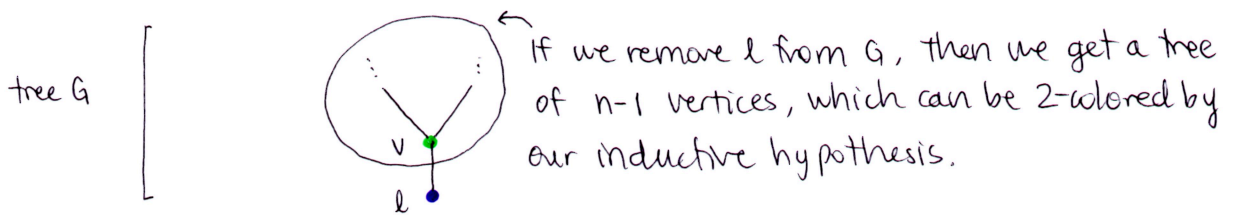 If we remove l from G, then we get a tree
tree G
of n-1 vertices, which can be 2-colored by
v
our inductive hypothesis.
l